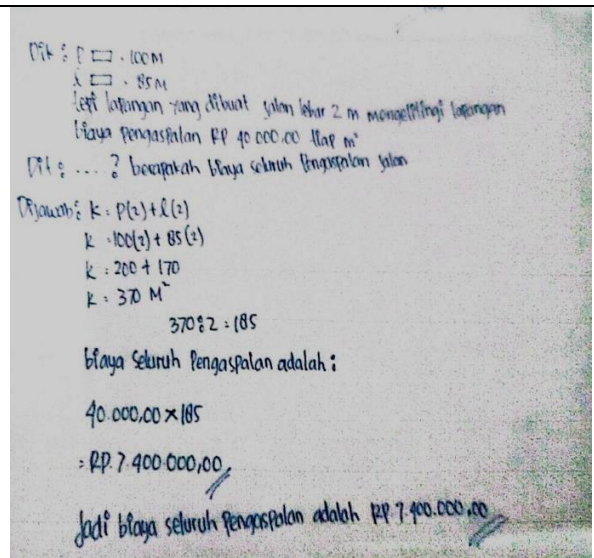 Dik : P ▭ . 100M
l ▭ . 85M
tepi lapangan yang dibuat jalan lebar 2 m mengelilingi lapangan
biaya pengaspalan RP 40 000.00 tiap m²
Dit : .... ? berapakah biaya seluruh pengaspalan jalan
Dijawab : k : P(2) + l(2)
k : 100(2) + 85(2)
k : 200 + 170
k : 370 M²
370 : 2 = 185
biaya seluruh Pengaspalan adalah :
40.000,00 × 185
= RP. 7.400.000,00
Jadi biaya seluruh Pengaspalan adalah RP 7.400.000,00